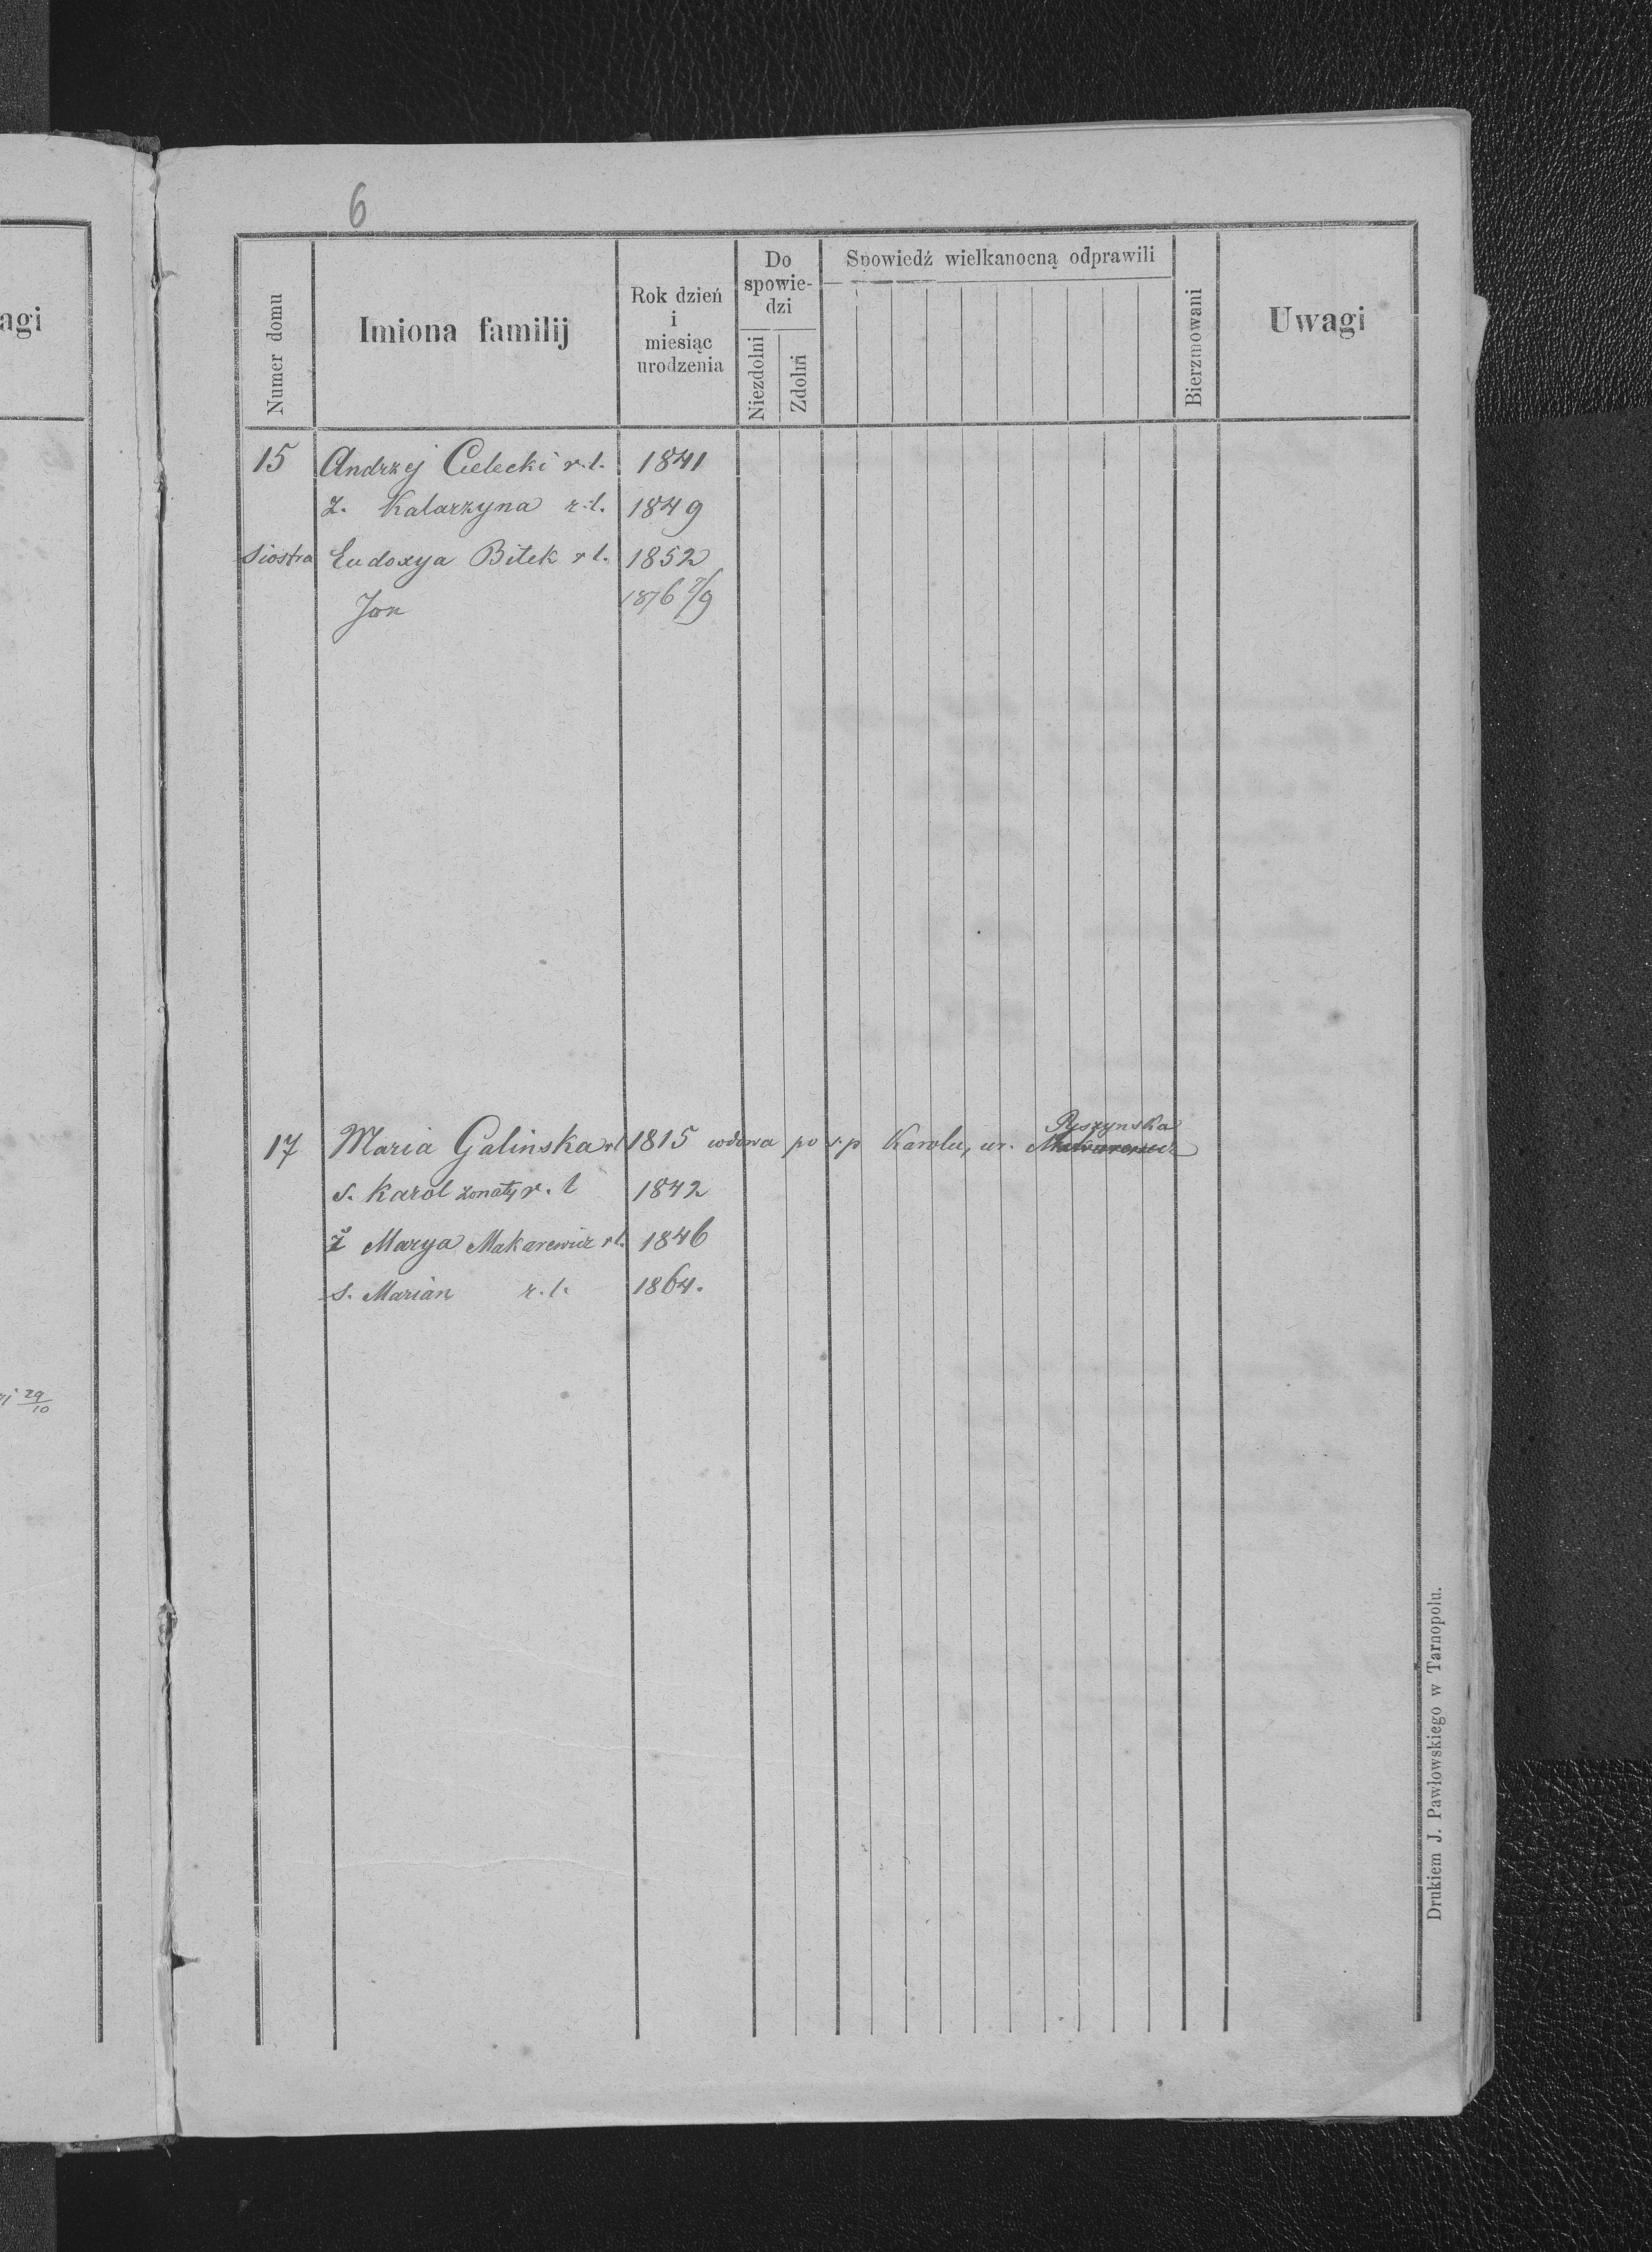 agi
29/10
6
Numer domu
Imiona familij
Rok dzień
i
miesiąc
urodzenia
Do
spowie-
dzi
Niezdolni
Zdolni
Spowiedź wielkanocną odprawili
Bierzmowani
Uwagi
15 Andrzej Cielecki r.l. 1841
ż. Katarzyna r.l. 1849
Siostra Eudoxya Bitek r l. 1852
Jan 1876 7/9
Ryszynska
17 Maria Galinska rl 1815 wdowa po s.p Karolu, ur. Makarewicz
s. Karol żonaty r. l 1842
ż Marya Makarewicz rl. 1846
s. Marian r.l. 1864.
Drukiem J. Pawłowskiego w Tarnopolu.